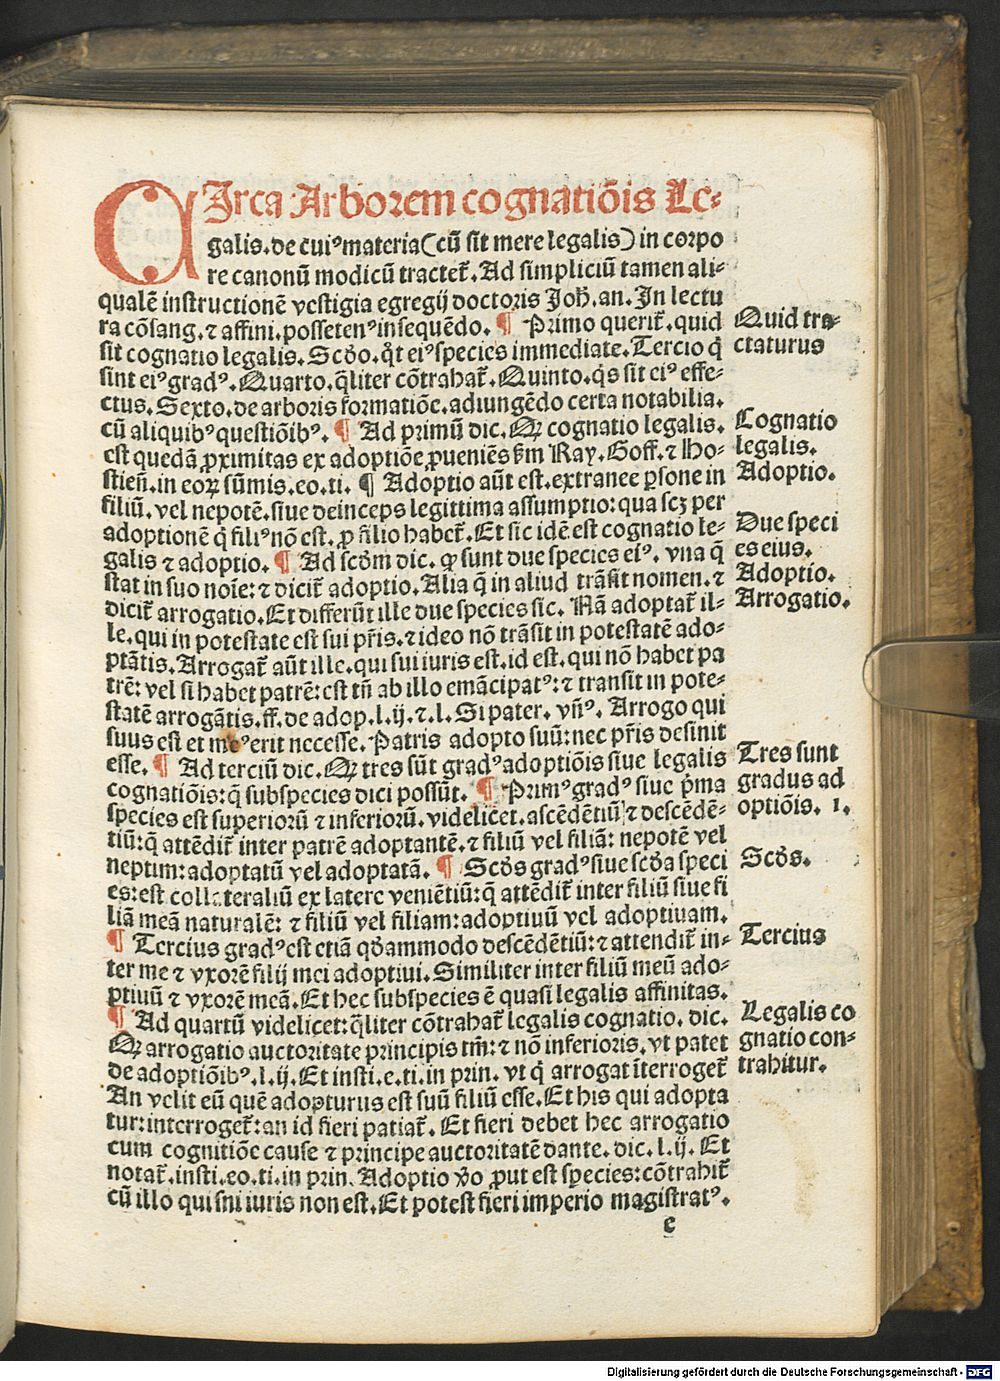 CIrca Arborem cognatiõis Le⸗
galis. de cuiꝰ materia (cũ sit mere legalis) in corpo
re canonũ modicũ tractet᷑. Ad simpliciũ tamen ali⸗
qualẽ instructionẽ vestigia egregij doctoris Joh̃. an. In lectu
ra cõsang. ⁊ affini. posseten⁹ insequẽdo. ¶ Primo querit᷑. quid
sit cognatio legalis. Scd̃o. q̃t eiꝰ species immediate. Tercio q̃
sint eiꝰ gradꝰ. Quarto. q̃liter cõtrahat᷑. Quinto. q̃s sit eiꝰ effe⸗
ctus. Sexto. de arboris formatiõe. adiungẽdo certa notabilia.
cũ aliquibꝰ questiõibꝰ. ¶ Ad primũ dic. Qꝛ cognatio legalis.
est quedã ꝓximitas ex adoptiõe ꝓueniẽs s̃m Ray. Goff. ⁊ Ho⸗
stieñ. in eoꝝ sũmis. eo. ti. ¶ Adoptio aũt est. extranee ꝑsone in
filiũ. vel nepotẽ. siue deinceps legittima assumptio: qua scꝫ per
adoptionẽ q̃ filiꝰ nõ est. ꝓ filio habet᷑. Et sic idẽ est cognatio le⸗
galis ⁊ adoptio. ¶ Ad scd̃m dic. ꝙ sunt due species eiꝰ. vna q̃
stat in suo noĩe: ⁊ dicit᷑ adoptio. Alia q̃ in aliud trãsit nomen. ⁊
dicit᷑ arrogatio. Et differũt ille due species sic. Nã adoptat᷑ il⸗
le. qui in potestate est sui pr̃is. ⁊ ideo nõ trãsit in potestatẽ ado⸗
ptãtis. Arrogat᷑ aũt ille. qui sui iuris est. id est. qui nõ habet pa
trẽ: vel si habet patrẽ: est tñ ab illo emãcipatꝰ: ⁊ transit in pote⸗
statẽ arrogãtis. ff. de adop. l. ij. ⁊ t. l. Si pater. vñꝰ. Arrogo qui
suus est et meꝰ erit necesse. Patris adopto suũ: nec pr̃is desinit
esse. ¶ Ad terciũ dic. Qꝛ tres sũt gradꝰ adoptiõis siue legalis
cognatiõis: q̃ subspecies dici possũt. ¶ Primꝰ gradꝰ siue pͥma
species est superiorũ ⁊ inferiorũ. videlicet. ascẽdẽtiũ ⁊ descẽdẽ⸗
tiũ: q̃ attẽdit᷑ inter patrẽ adoptantẽ. ⁊ filiũ vel filiã: nepotẽ vel
neptim: adoptatũ vel adoptatã. ¶ Scd̃s gradꝰ siue scd̃a speci
es: est collateraliũ ex latere veniẽtiũ: q̃ attẽdit᷑ inter filiũ siue fi
liã meã naturalẽ: ⁊ filiũ vel filiam: adoptiuũ vel adoptiuam.
¶ Tercius gradꝰ est etiã qd̃ammodo descẽdẽtiũ: ⁊ attendit᷑ in⸗
ter me ⁊ vxorẽ filij mei adoptiui. Similiter inter filiũ meũ ado⸗
ptiuũ ⁊ vxorẽ meã. Et hec subspecies ẽ quasi legalis affinitas.
¶ Ad quartũ videlicet: q̃liter cõtrahat᷑ legalis cognatio. dic.
Qꝛ arrogatio auctoritate principis tm̃: ⁊ nõ inferioris. vt patet
de adoptiõibꝰ. l. ij. Et insti. e. ti. in prin. vt q̃ arrogat ĩterroget᷑
An velit eũ quẽ adopturus est suũ filiũ esse. Et his qui adopta
tur: interroget᷑: an id fieri patiat᷑. Et fieri debet hec arrogatio
cum cognitiõe cause ⁊ principe auctoritatẽ dante. dic. l. ij. Et
notat᷑. insti. eo. ti. in prin. Adoptio v̾o ꝓut est species: cõtrahit᷑
cũ illo qui sui iuris non est. Et potest fieri imperio magistratꝰ.
c
Quid tra⸗
ctaturus
Cognatio
legalis.
Adoptio.
Due speci
es eius.
Adoptio.
Arrogatio.
Tres sunt
gradus ad
optiõis. 1.
Scd̃s.
Tercius
Legalis co
gnatio con⸗
trahitur.
Digitalisierung gefördert durch die Deutsche Forschungsgemeinschaft - DFG